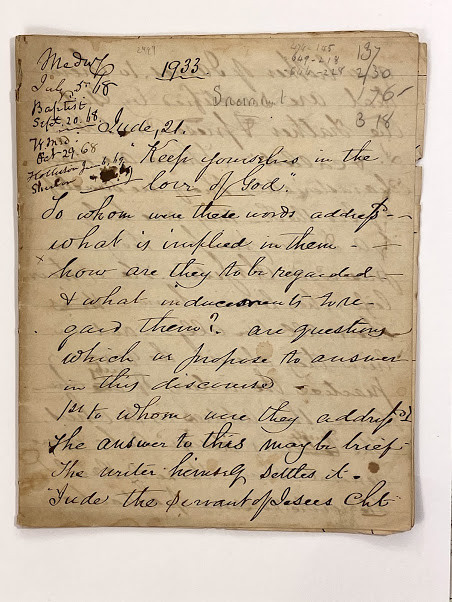 Medway
July 5th 68
Baptist
Sept. 20. 68.
Oct 29. 68
Holliston
1933
137
2/30
3 18
Jude, 21.
"Keep yourselves in the
love of God."
To whom were these words address -
what is implied in them -
how are they to be regarded
& what inducements to re-
gard them? are questions
which we propose to answer
in this discourse
1st to whom were they address'd
The answer to this may be brief
The writer himself settles it.
Jude the servant of Jesus Cht